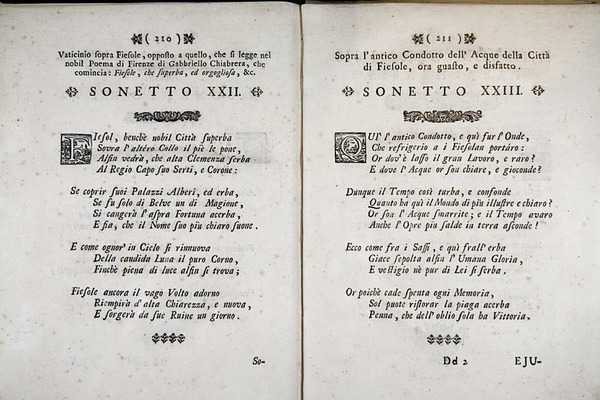 ( 210 )
Vaticinio sopra Fiesole, opposto a quello, che si legge nel
nobil Poema di Firenze di Gabbriello Chiabrera, che
comincia: Fiesole, che superba, ed orgogliosa, &c.
SONETTO XXII.
FIesol, benchè nobil Città superba
Sovra l'altéro Collo il piè le pone,
Alfin vedrà, che alta Clemenza serba
Al Regio Capo suo Serti, e Corone:
Se coprir suoi Palazzi Alberi, ed erba,
Se fu solo di Belve un dì Magione,
Si cangerà l'aspra Fortuna acerba,
E fia, che il Nome suo più chiaro suone.
E come ognor' in Cielo si rinnuova
Della candida Luna il puro Corno,
Finchè piena di luce alfin si trova;
Fiesole ancora il vago Volto adorno
Riempirà d'alta Chiarezza, e nuova,
E sorgerà da sue Ruine un giorno.
So-
( 211 )
Sopra l'antico Condotto dell' Acque della Città
di Fiesole, ora guasto, e disfatto.
SONETTO XXIII.
QUI l'antico Condotto, e quì fur l'Onde,
Che refrigerio a i Fiesolan portáro:
Or dov'è lasso il gran Lavoro, e raro?
E dove l'Acque or son chiare, e gioconde?
Dunque il Tempo così turba, e confonde
Quanto ha quì il Mondo di più illustre e chiaro?
Or son l'Acque smarrite; e il Tempo avaro
Anche l'Opre più salde in terra asconde!
Ecco come fra i Sassi, e quì frall'erba
Giace sepolta alfin l'Umana Gloria,
E vestigio nè pur di Lei si serba.
Or poichè cade spenta ogni Memoria,
Sol puote ristorar la piaga acerba
Penna, che dell'oblio sola ha Vittoria.
Dd 2 EJU-